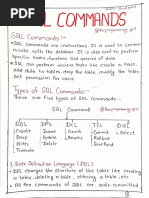 SQL COMMANDS
SQL Commands :-
SQL commands are instructions. It is used to communicate with the database. It is also used to perform specific tasks, functions and queries of data.
SQL can perform various tasks like create a table, add data to tables, drop the table, modify the table, set permission for users.
Types of SQL Commands :-
There are five types of SQL Commands.
SQL Command
DDL
DML
DCL
TCL
DQL
Create
Drop
Alter
Truncate
Insert
Update
Delete
Grant
Revoke
Commit
Rollback
Select
1. Data Definition Language (DDL)
DDL changes the structure of the table like creating a table, deleting a table, altering a table, etc.
All the commands of DDL are auto committed